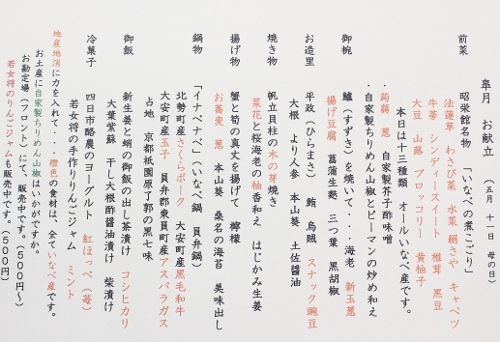 皐月 お献立
(五月 十一日 母の日)
前菜
昭栄館名物 「いなべの煮こごり」
法蓮草 わさび菜 水菜 絹さや キャベツ
牛蒡 シンディースイート 椎茸 黒豆
大豆 山蕗 ブロッコリー 黄柚子
本日は十三種類 オールいなべ産です。
・蒟蒻 葱 自家製芥子酢味噌
・自家製ちりめん山椒とピーマンの炒め和え
御椀
鱸(すずき)を焼いて・・・海老 新玉葱
揚げ豆腐 菖蒲生麩 三つ葉 黒胡椒
お造里
平政(ひらまさ) 鮪 烏賊 スナック豌豆
大根 より人参 本山葵 土佐醤油
焼き物
帆立貝柱の木の芽焼き
菜花と桜海老の柚香和え はじかみ生姜
揚げ物
蟹と筍の真丈を揚げて 檸檬
お蕎麦 葱 本山葵 桑名の海苔 美味出し
鍋物
「イナベナベ」(いなべ鍋 員弁鍋)
北勢町産さくらポーク 大安町産黒毛和牛
大安町産玉子 員弁郡東員町産アスパラガス
占地 京都祇園原了郭の黒七味
御飯
新生姜と蛸の御飯の出し茶漬け コシヒカリ
大葉紫蘇 干し大根酢醤油漬け 柴漬け
冷菓子
四日市酪農のヨーグルト 紅ほっぺ(苺)
若女将の手作りりんごジャム ミント
地産地消に力を入れて・・・橙色の食材は、全ていなべ産です。
お土産に自家製ちりめん山椒はいかがですか。
お勘定場(フロント)にて、販売中です。(500円~)
若女将のりんごジャムも販売中です。(500円)